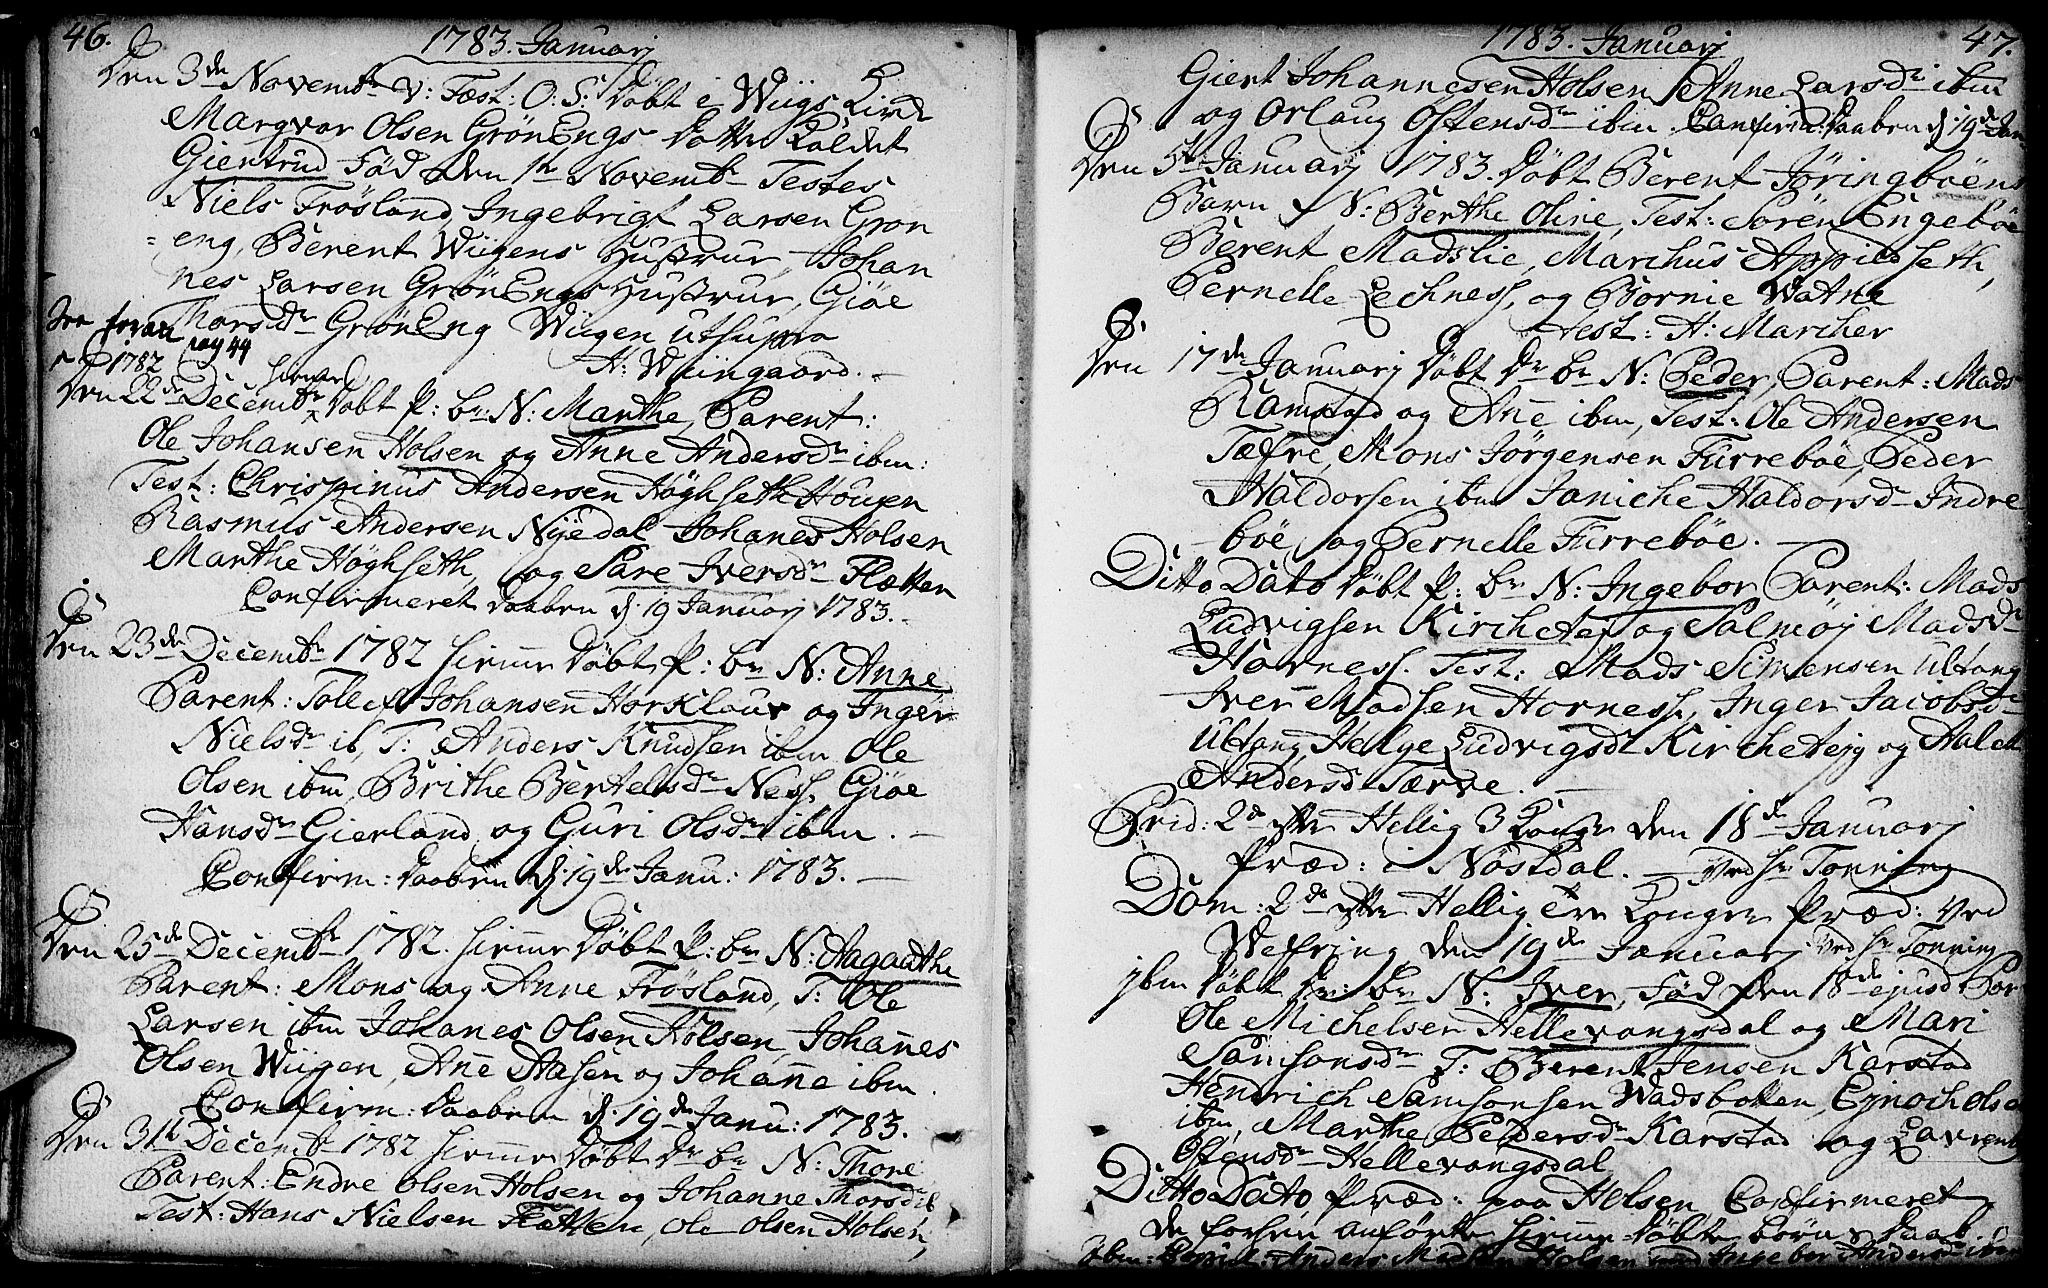 46.
1783. Januarj
Den 3de Novembr V: Fæst: O: S: Døbt i Wiigs Kirke
Margvar Olsen GrönEngs Datter Kaldet
Giertrud Föd Den 1te Novembr Testes
Niels Frösland, Ingebrigt Larsen Grön
eng, Berent Wiigens Hustrue, Johan
nes Larsen GrönEngs Hustrue, Giöe
Thorsdr GrönEng Wiigen ut supra
pag 44
H: Wiingaard.
1782
Den 22de Decembr Döbt P: br: N: Marthe, Parent:
Ole Johansen Holsen og Anne Andersdr ibm:
Test: Chrispinus Andersen Höghseth Houen
Rasmus Andersen Nÿedal Johanes Holsen
Marthe Höghseth, og Sare Iversdr Flætten
Confirmeret Daaben d: 19 Januarj 1783.
Den 23de Decembr 1782 hiemme Döbt P: br N: Anne
Parent: Tollef Johansen Horsklour og Inger
Nielsdr ib, T: Anders Knudsen ibm Ole
Olsen ibm, Brithe Bertelsdr Ness, Giöe
Hansdr Gierland og Guri Olsdr ibm.
Confirm: Daaben d: 19de Janu: 1783.
Den 25de Decembr 1782. hiemme Döbt P: br N: Aagaathe
Parent: Mons og Anne Frösland, T: Ole
Larsen ibm Johanes Olsen Holsen, Johanes
Olsen Wiigen, Ane Aasen og Johane ibm.
Confirm: Daaben d: 19de Janu: 1783.
Den 31te Decembr 1782 hiemme Döbt Dr br N: Thore
Parent: Endre Olsen Holsen og Johanne Thorsdr ib
Test: Hans Nielsen Flætten, Ole Olsen Holsen,
1783. Januarj
47.
Giert Johannesen Holsen, Anne Larsdr ibm
og Orlaug Ostensdr ibm. Confirm: Daaben d: 19de Jan
Den 5te Januarj 1783. Döbt Berent Jöringböens
Barn N: Berthe Oline, Test: Sören Engeböe
Berent Madslie, Marchus Appildseth,
Pernelle Lechness, og Bornie Watne
Test: H: Marcher
Den 17de Januarj Döbt Dr br N: Peder, Parent: Mads
Ramstad og Ane ibm, Test: Ole Andersen
Tæfre, Mons Jörgensen Furreböe, Peder
Haldorsen ibm Janiche Haldorsdr Indre
böe og Pernelle Furreböe.
Ditto Dato Döbt P: br N: Ingebor Parent: Mads
Ludvigsen Kircheteig og Salmöj Madsdr
Horness. Test: Mads Simensen Ultang
Iver Madsen Horness, Inger Jacobsdr
Ultang, Helge Ludvigsdr Kircheteig og
Andersdr Tærve.
Prid: 2de efter Hellig 3 Konger den 18de Januarj
Præd: i Nöstdal. Ved Hr Tonning
Dom: 2de efter Hellig tre Konger Præd: Ved
Wefring, den 19de Januarj Ved Hr Tonning
ibm Döbt br N: Iver, Föd den 18de ejusd Par
Ole Michelsen Hellevangsdal og Mari
Samsonsdr T: Berent Jensen Karstad
Hendrich Samsonsen Wadsbotten, Ejnoch Olsen
ibm, Marthe Pedersdr Karstad og
Ostensdr Hellevangsdal
Ditto Dato Præd: paa Holsen, Confirmeret
de forhen anförte hiemme Döbte Börns Daab.
ibm: Anders Madsen Holsen med Ingebor Andersdr ibm